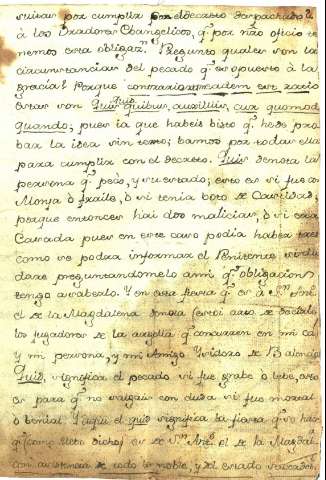 cuitar por cumplir con el decreto despachado
à los Oradores Evangelicos, q.e por não oficio te
nemos esta obligaz.n Pregunto quales son las
circunstancias del pecado q.e se opuesto à la
gracia? Porque contrariorum eadem est ratio
estas son Quis quid quibus, auxilliis, cur quomodo
quando; pues ia que habeis bisto q.e hede pro
bar la idea sin texto; bamos por todas ellas
para cumplir con el decreto. Quis denota la
persona q.e pecò, y su estado; esto es si fue con
Monja ò fraile, ò si tenia boto de Castidad,
porque entonces hai dos malicias, ò si era
Casada pues en este caso podia haber
como se podra informar el Penitente
dare preguntandomelo ami q.e obligacion
tengo asaberlo. Y en esta fiesta q.e es à S.n Ant.o
el de la Magdalena denota
los jugadores de la que concurren en mi ca
y mi persona, y mi Amigo Ysidoro de
Quid, significa el pecado si fue grabe ò lebe, esto
es para q.e no vaiguis con duda si fue mortal
ò benial. Y aqui el quid significa la fiesta q.e se hace
q.e (como llebo dicho) es de S.n Ant.o el de la Magdal.a
con asistencia de todo lo noble, y del estado